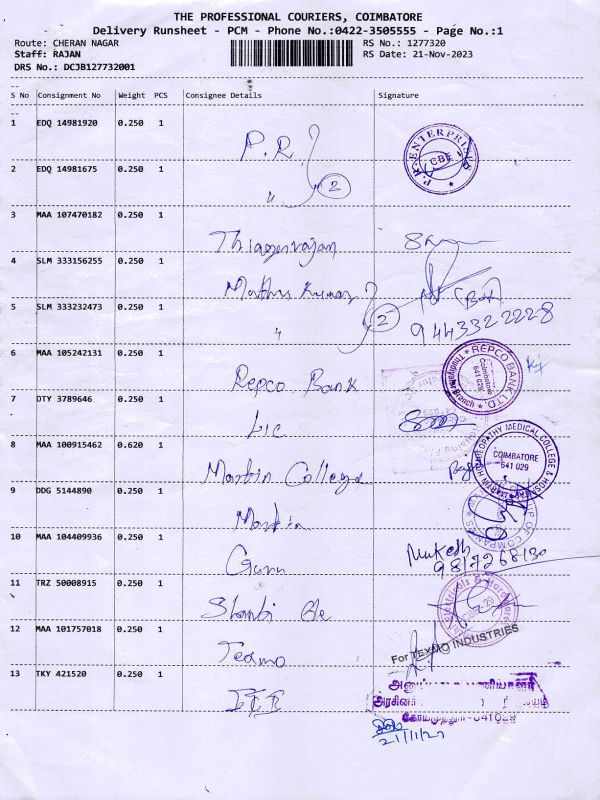 THE PROFESSIONAL COURIERS, COIMBATORE
Delivery Runsheet - PCM - Phone No.:0422-3505555 - Page No.:1
Route: CHERAN NAGAR RS No.: 1277320
Staff: RAJAN RS Date: 21-Nov-2023
DRS No.: DCJB127732001
S No Consignment No Weight PCS Consignee Details Signature
1 EDQ 14981920 0.250 1 P.R. P.R.ENTERPRISES CBE
2 EDQ 14981675 0.250 1 " 2
3 MAA 107470182 0.250 1 Thiagarajan
4 SLM 333156255 0.250 1 Mathu Kumar
5 SLM 333232473 0.250 1 " 2 9443322228
6 MAA 105242131 0.250 1 Repco Bank REPCO BANK LTD Coimbatore 641 029 Branch
7 OTY 3789646 0.250 1 LIC
8 MAA 100915462 0.620 1 Martin College MARTIN HOMOEOPATHY MEDICAL COLLEGE & COIMBATORE 641 029
9 DDG 5144890 0.250 1 Martin OF COMPANIES
10 MAA 104409936 0.250 1 Guru Mukesh 9817268130
11 TRZ 50008915 0.250 1 Electricals & Hardware
12 MAA 101757018 0.250 1 For TEXMO INDUSTRIES
13 TKY 421520 0.250 1
கோயமுத்தூர்-641029
21/11/23